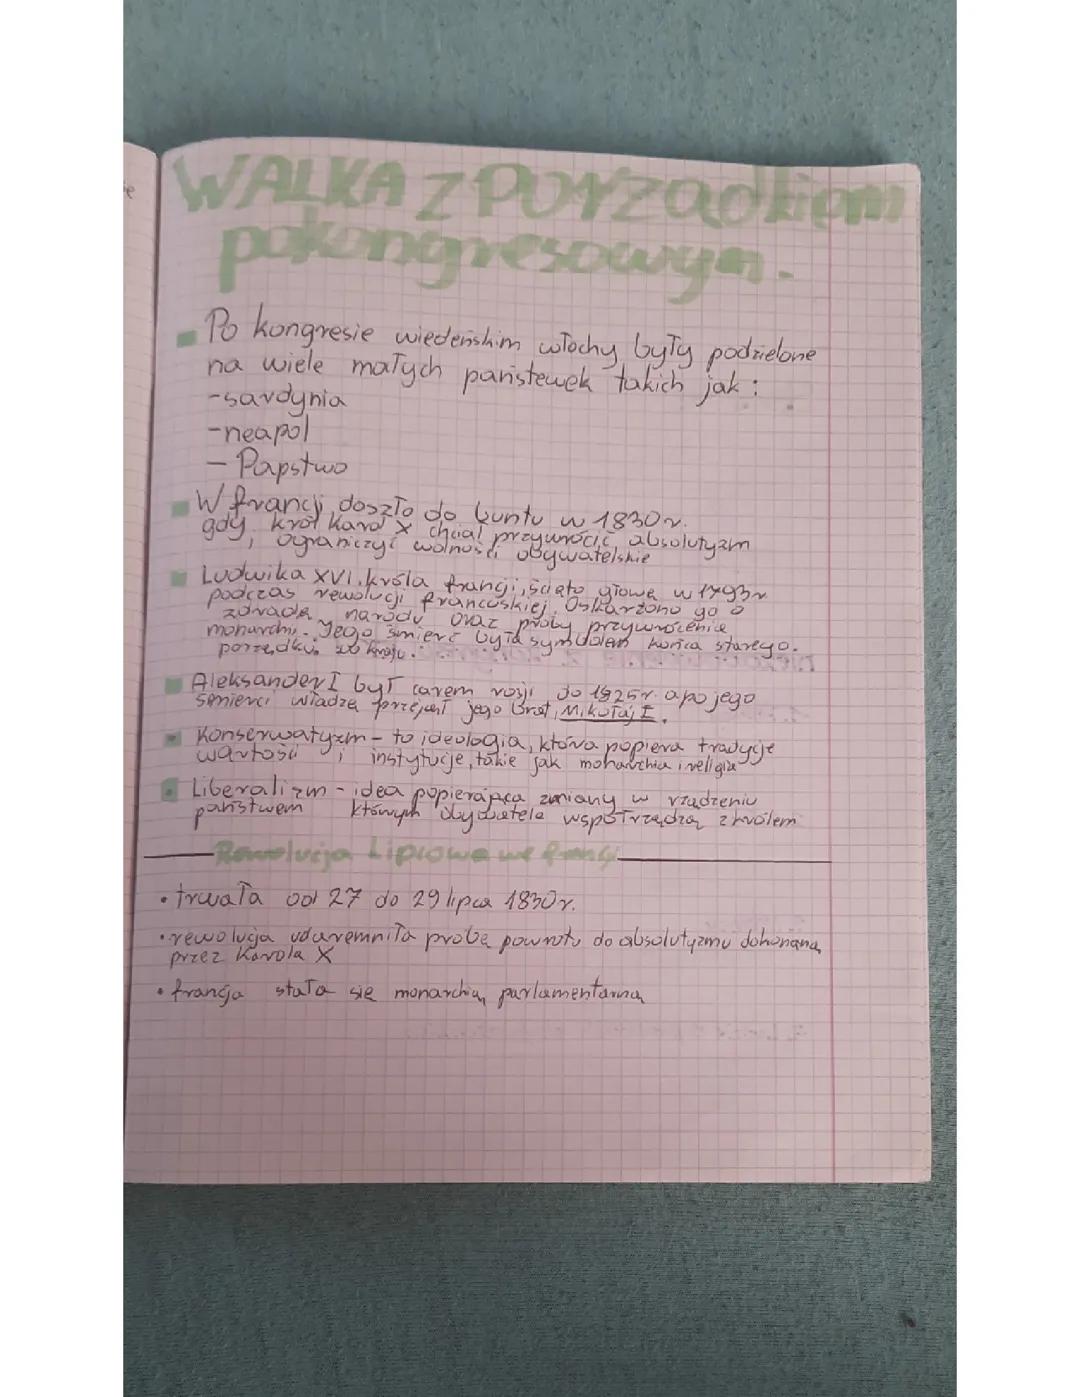 WALKA Z PORZĄdkiem
pokongresowym.
Po kongresie wiedeńskim włochy były podzielone
na wiele małych państewek takich jak :
-sardynia
-neapol
- Papstwo
W francji doszło do buntu w 1830r.
gdy król Karol X chciał przywrócić absolutyzm
i ograniczyć wolności obywatelskie
Ludwika XVI. króla francji, ścięto głowę w 1793r
podczas rewolucji francuskiej. Oskarżono go o
zdradę narodu oraz próby przywrócenia
monarchi. Jego śmierć była symbolem końca starego.
porządku w kraju.
Aleksander I był carem rosji do 1825r. a po jego
śmierci władzę przejął jego brat, Mikołaj I.
Konserwatyzm - to ideologia, która popiera tradycje
wartości i instytucje, takie jak monarchia i religia
Liberalizm - idea popierająca zmiany w rządzeniu
państwem których obywatele współrządzą z królem
Rewolucja Lipcowa we francji
• trwała od 27 do 29 lipca 1830r.
• rewolucja udaremniła próbę powrotu do absolutyzmu dokonaną
przez Karola X
• francja stała się monarchią parlamentarną